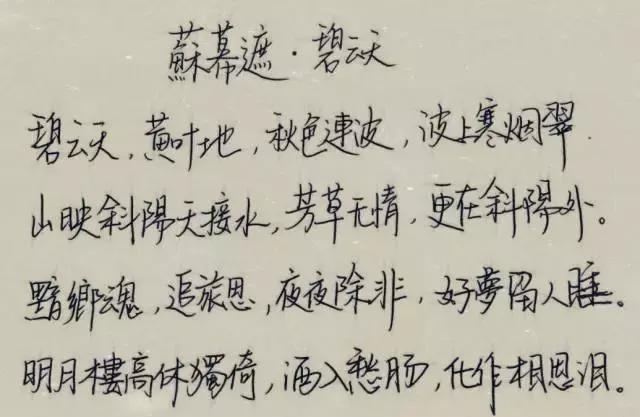 蘇幕遮·碧云天
碧云天，黄叶地，秋色連波，波上寒烟翠.
山映斜陽天接水，芳草无情，更在斜陽外。
黯鄉魂，追旅思，夜夜除非，好夢留人睡。
明月樓高休獨倚，酒入愁肠，化作相思泪。